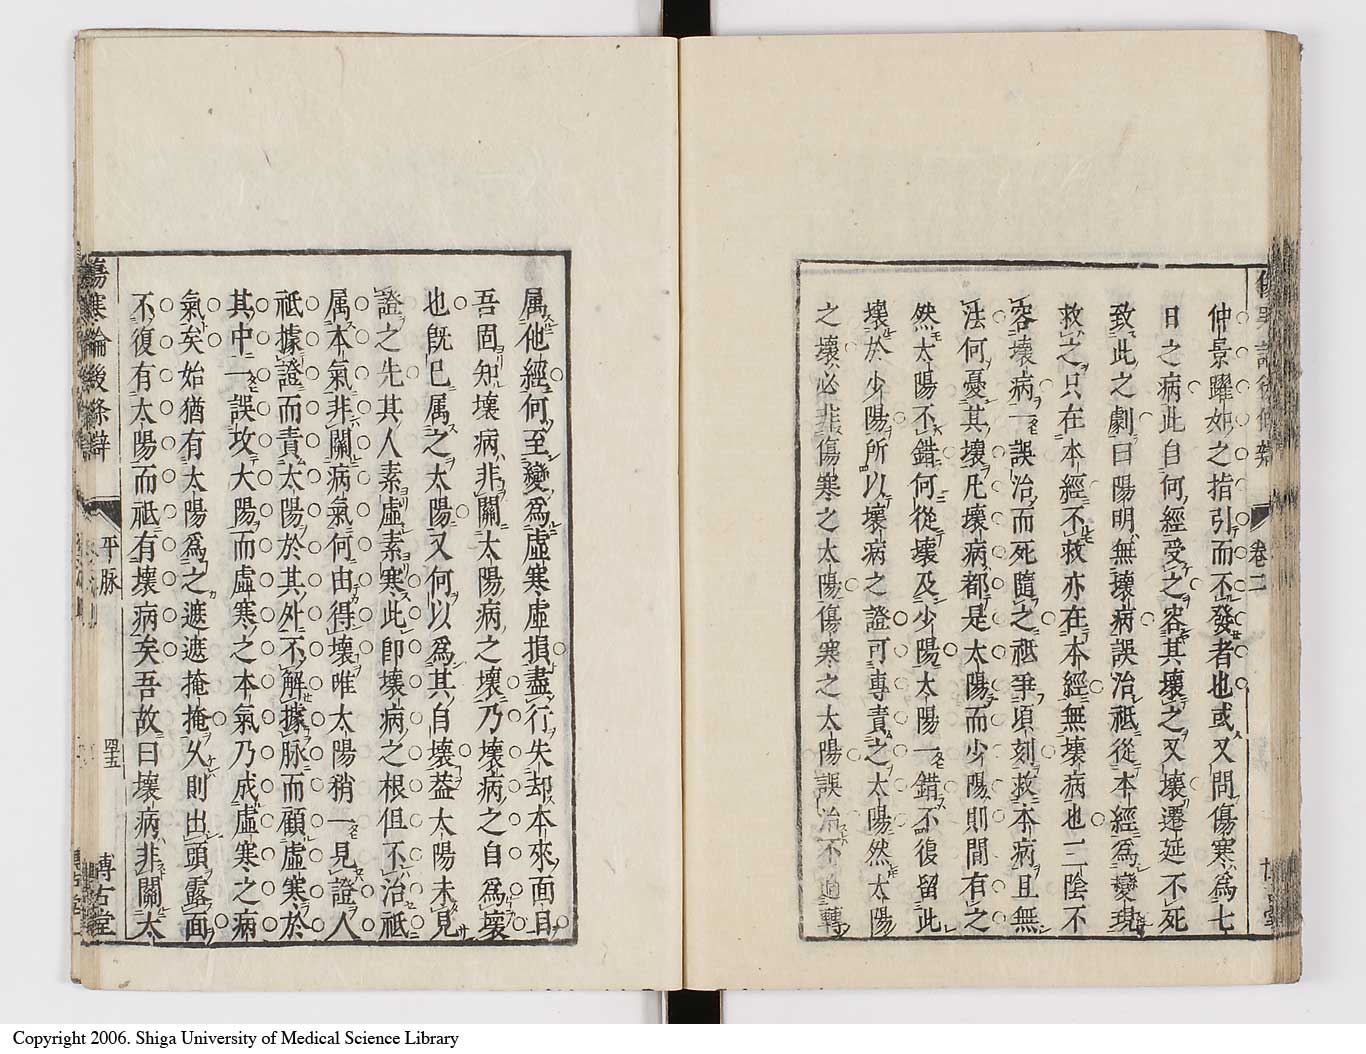 卷二
仲景躍如之指引而不發者也或又問傷寒爲七
日之病此自何經受之容其壞之又壞遷延不死
致此之劇曰陽明無壞病誤治祗從本經爲變現
救之只在本經不救亦在本經無壞病也三陰不
容壞病一誤治而死隨之祗爭頃刻救本病且無
法何憂其壞凡壞病都是太陽而少陽則間有之
然太陽不錯何從壞及少陽太陽一錯不復留此
壞於少陽所以壞病之證可專責之太陽然太陽
之壞必非傷寒之太陽傷寒之太陽誤治不過轉
属他經何至變爲虛寒虛損盡行失却本來面目
吾固知壞病非關太陽病之壞乃壞病之自爲壞
也旣已属之太陽又何以爲其自壞葢太陽未見
證之先其人素虛素寒此卽壞病之根但不治祗
属本氣非關病氣何由得壞唯太陽稍一見證人
祗據證而責太陽於其外不解據脉而顧虛寒於
其中一誤攻大陽而虛寒之本氣乃成虛寒之病
氣矣始猶有太陽爲之遮遮掩掩久則出頭露面
不復有太陽而祗有壞病矣吾故曰壞病非關太
傷寒論後條辯
平脉
博古堂
Copyright 2006. Shiga University of Medical Science Library